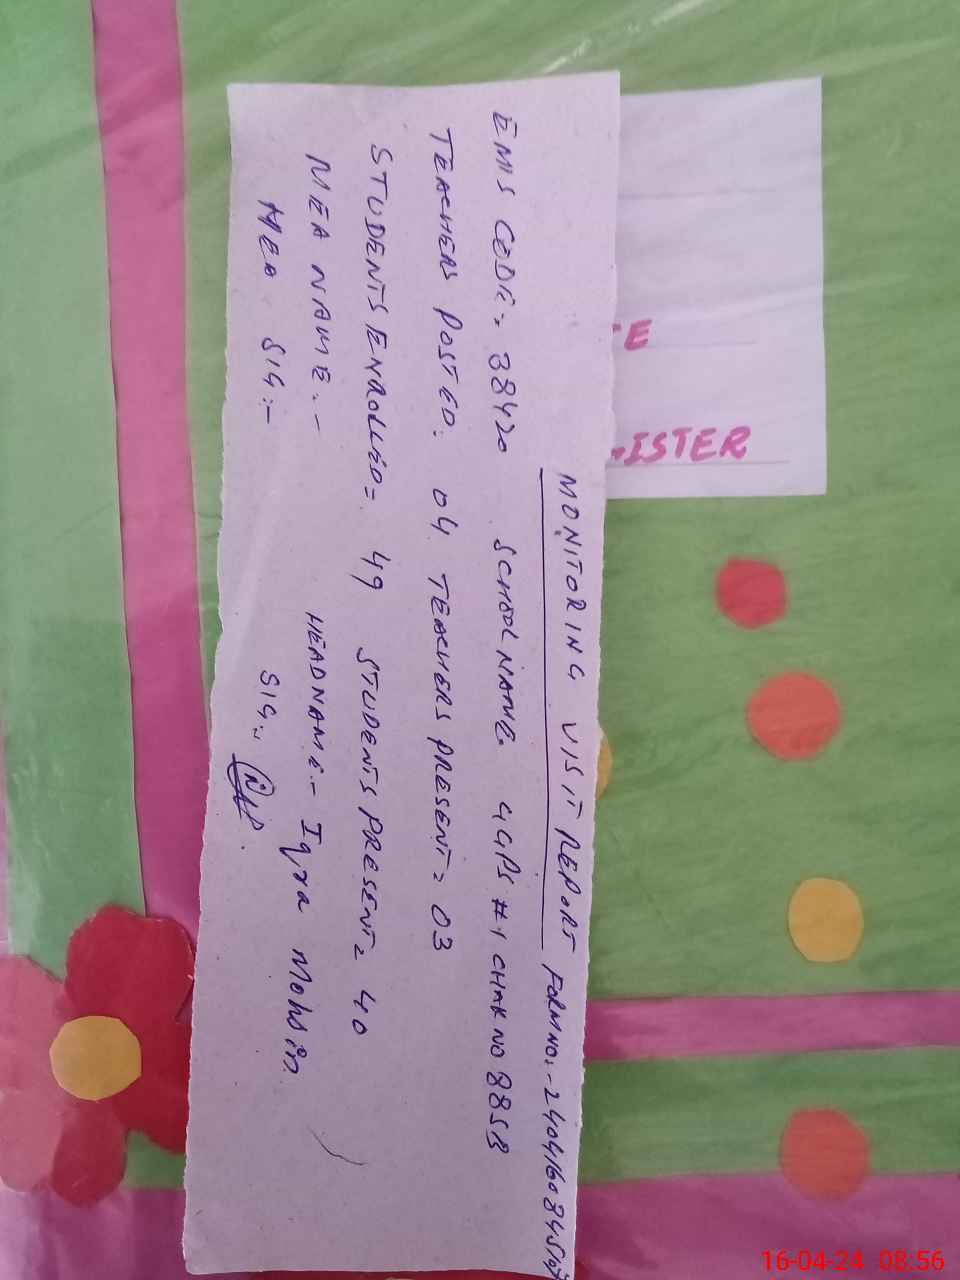 MONITORING VISIT REPORT FORM NO:-
EMIS CODE = 38420 SCHOOL NAME. GGPS #1 CHAK NO 88SB
TEACHERS POSTED: 04. TEACHERS PRESENT = 03
STUDENTS ENROLLED = 49 STUDENTS PRESENT = 40
MEA NAME:- HEAD NAME:- Iqra Mohsin
MEA SIG:- SIG:-
TE
ISTER
16-04-24 08:56